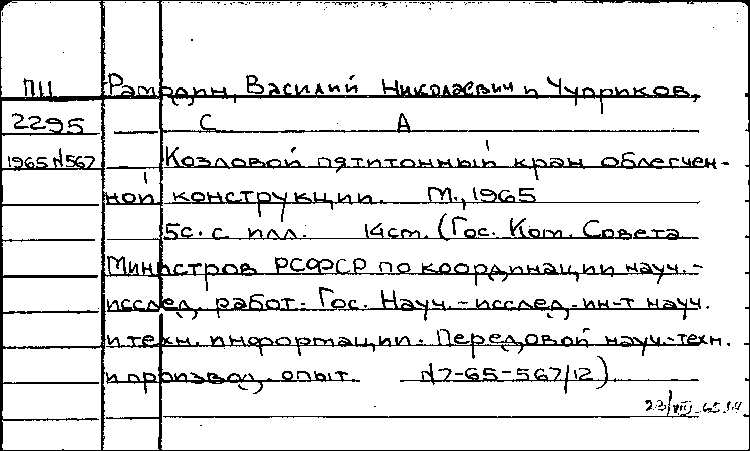 ПII Рамодин, Василий Николаевич и Чуприков,
2295 С А
1965 N567 Козловой пятитонный кран облегчен-
ной конструкции. М., 1965
5с. с илл. 14см. (Гос. Ком. Совета
Министров РСФСР по координации науч.-
исслед. работ. Гос. Науч.-исслед. ин-т науч.
и техн. информации. Передовой науч.-техн.
и производ. опыт. N7-65-567/12)
23/VIII 65